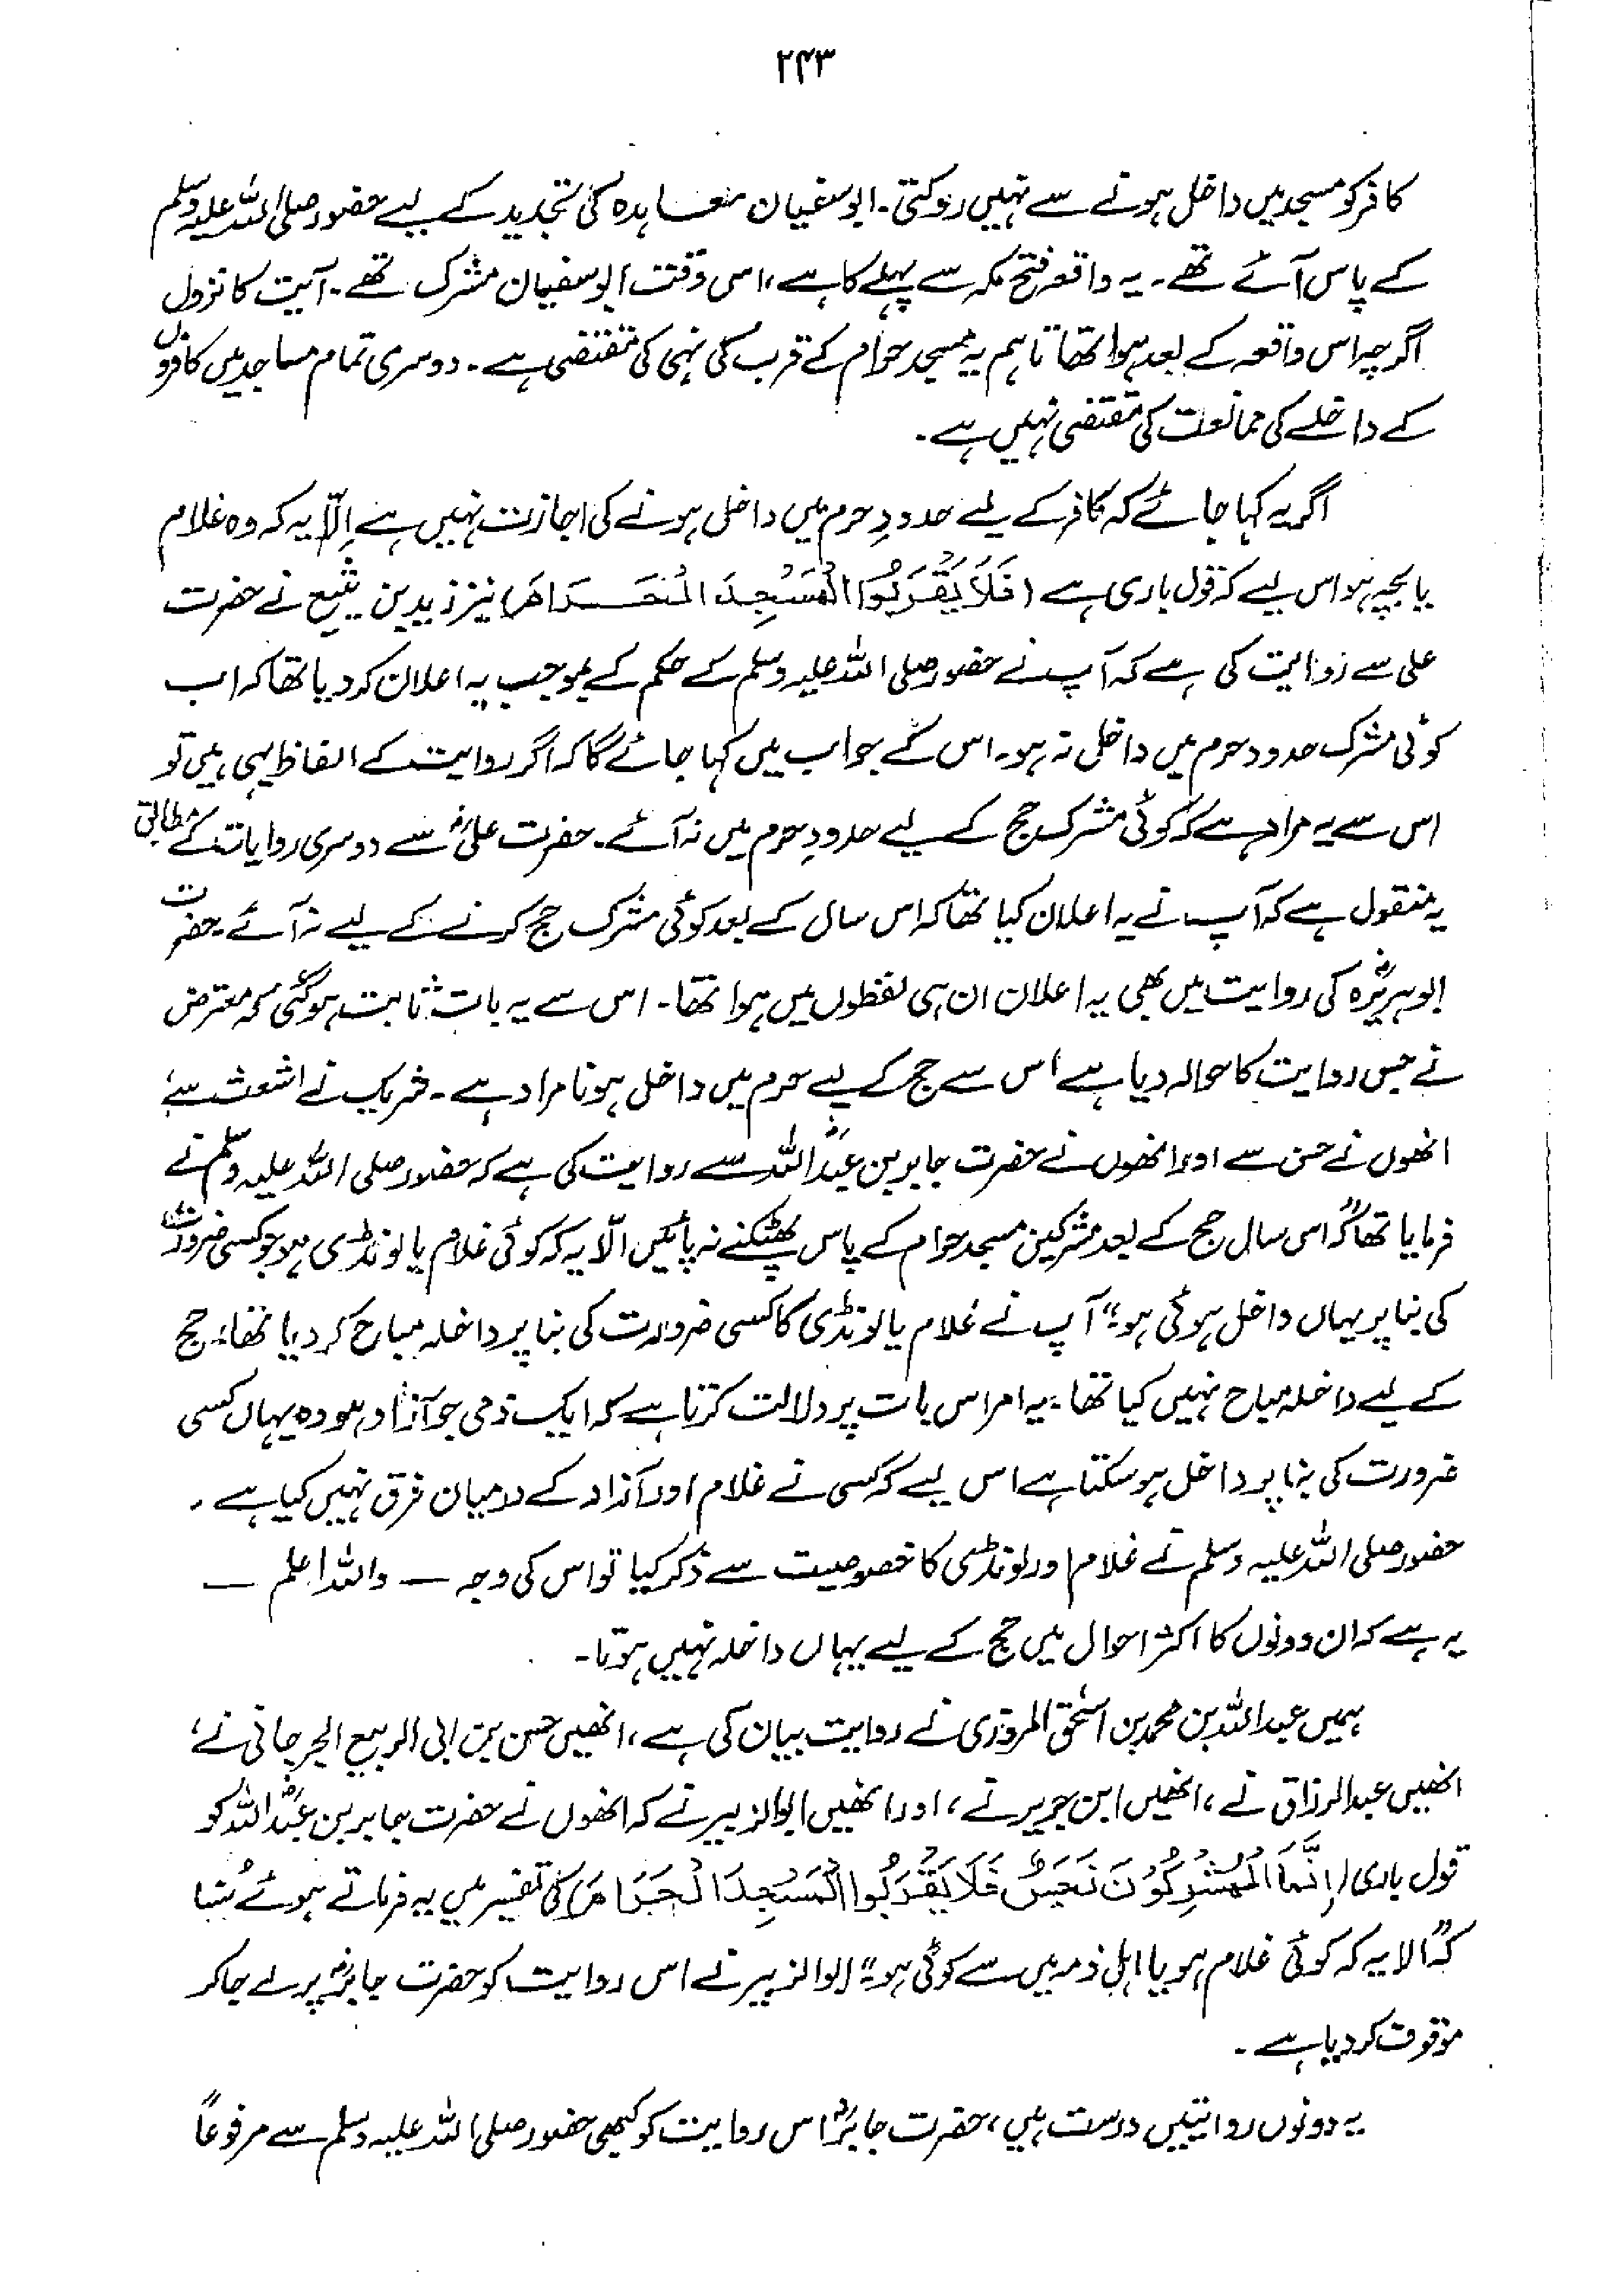 ۲۴۳
کافر کو مسجد میں داخل ہونے سے نہیں روکتی۔ ابوسفیان معاہدہ کی تجدید کے لیے حضور صلی اللہ علیہ وسلم
کے پاس آئے تھے۔ یہ واقعہ فتح مکہ سے پہلے کا ہے، اس وقت ابوسفیان مشرک تھے۔ آیت کا نزول
اگرچہ اس واقعہ کے بعد ہوا تھا تاہم یہ مسجد حرام کے قرب کی نہی کی مقتضی ہے۔ دوسری تمام مساجد میں کافروں
کے داخلے کی ممانعت کی مقتضی نہیں ہے۔
اگر یہ کہا جائے کہ کافر کے لیے حدودِ حرم میں داخل ہونے کی اجازت نہیں ہے اِلّا یہ کہ وہ غلام
یا بچہ ہو اس لیے کہ قول باری ہے (فَلَا يَقْرَبُوا الْمَسْجِدَ الْحَرَامَ) نیز زید بن یثیع نے حضرت
علی سے روایت کی ہے کہ آپ نے حضور صلی اللہ علیہ وسلم کے حکم کے بموجب یہ اعلان کر دیا تھا کہ اب
کوئی مشرک حدود حرم میں داخل نہ ہو۔ اس کے جواب میں کہا جائے گا کہ اگر روایت کے الفاظ یہی ہیں تو
اس سے یہ مراد ہے کہ کوئی مشرک حج کے لیے حدودِ حرم میں نہ آئے۔ حضرت علیؓ سے دوسری روایات کے مطابق
یہ منقول ہے کہ آپ نے یہ اعلان کیا تھا کہ اس سال کے بعد کوئی مشرک حج کرنے کے لیے نہ آئے۔ حضرت
ابوہریرہؓ کی روایت میں بھی یہ اعلان ان ہی لفظوں میں ہوا تھا۔ اس سے یہ بات ثابت ہو گئی کہ معترض
نے جس روایت کا حوالہ دیا ہے اس سے حج کے لیے حرم میں داخل ہونا مراد ہے۔ شریک نے اشعث سے،
انھوں نے حسن سے اور انھوں نے حضرت جابر بن عبداللہؓ سے روایت کی ہے کہ حضور صلی اللہ علیہ وسلم نے
فرمایا تھا کہ "اس سال حج کے بعد مشرکین مسجد حرام کے پاس پھٹکنے نہ پائیں الّا یہ کہ کوئی غلام یا لونڈی ہو جو کسی ضرورت
کی بنا پر یہاں داخل ہوئی ہو" آپ نے غلام یا لونڈی کا کسی ضرورت کی بنا پر داخلہ مباح کر دیا تھا، حج
کے لیے داخلہ مباح نہیں کیا تھا، یہ امر اس بات پر دلالت کرتا ہے کہ ایک ذمی جو آزاد ہو وہ یہاں کسی
ضرورت کی بنا پر داخل ہو سکتا ہے اس لیے کہ کسی نے غلام اور آزاد کے درمیان فرق نہیں کیا ہے۔
حضور صلی اللہ علیہ وسلم نے غلام اور لونڈی کا خصوصیت سے ذکر کیا تو اس کی وجہ — واللہ اعلم —
یہ ہے کہ ان دونوں کا اکثر احوال میں حج کے لیے یہاں داخلہ نہیں ہوتا۔
ہمیں عبداللہ بن محمد بن اسحٰق المروزی نے روایت بیان کی ہے، انھیں حسن بن ابی الربیع الجرجانی نے،
انھیں عبدالرزاق نے، انھیں ابن جریر نے، اور انھیں ابوالزبیر نے کہ انھوں نے حضرت جابر بن عبداللہؓ کو
قول باری (اِنَّمَا الْمُشْرِكُوْنَ نَجَسٌ فَلَا يَقْرَبُوا الْمَسْجِدَ الْحَرَامَ) کی تفسیر میں یہ فرماتے ہوئے سُنا
کہ "الا یہ کہ کوئی غلام ہو یا اہل ذمہ میں سے کوئی ہو" ابوالزبیر نے اس روایت کو حضرت جابرؓ پر لے جا کر
موقوف کر دیا ہے۔
یہ دونوں روایتیں درست ہیں، حضرت جابرؓ اس روایت کو کبھی حضور صلی اللہ علیہ وسلم سے مرفوعاً